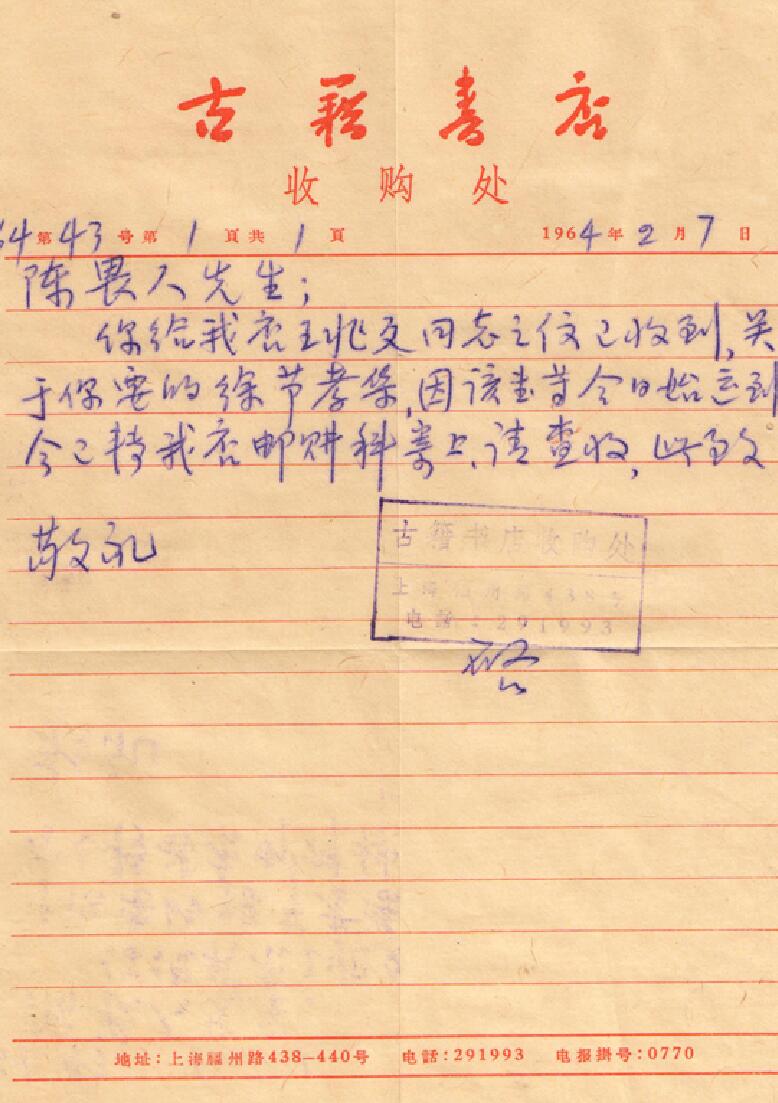 古籍书店
收购处
64第43号第1頁共1頁 1964年2月7日
陈畏人先生;
你给我店王兆文同志之信已收到,关
于你要的徐节孝集,因该书昔今日始运到
今已转我店邮购科寄上、请查收,此致
敬礼
古籍书店收购处
上海福州路438号
电話:291993
启
地址:上海福州路438—440号 电話:291993 电报掛号:0770